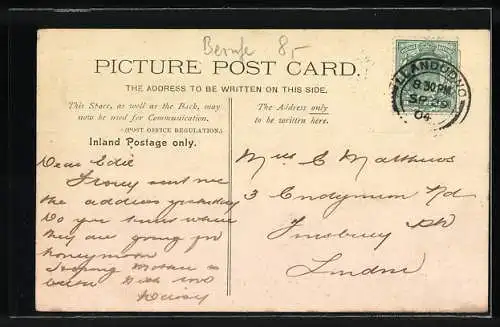 Berufe 8,-
PICTURE POST CARD.
THE ADDRESS TO BE WRITTEN ON THIS SIDE.
This Space, as well as the Back, may
now be used for Communication.
(POST OFFICE REGULATION.)
Inland Postage only.
The Address only
to be written here.
LLANDUDNO
8.30PM
SP 19
04
Dear Edie
sent me
the address yesterday
Do you know where
they are going for
honeymoon
Hoping Mother is
better with love
Daisy
Miss E Matthews
3 Endymion Rd
Finsbury Pk
London